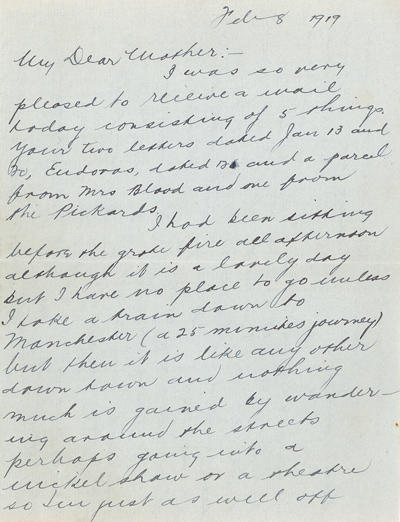 Feb 8 1919
My Dear Mother:-
I was so very
pleased to receive a mail
today consisting of 5 things.
Your two letters dated Jan 13 and
20, Eudoras, dated and a parcel
from Mrs Blood and one from
the Pickards.
I had been sitting
before the grate fire all afternoon
although it is a lovely day
but I have no place to go unless
I take a train down to
Manchester (a 25 minutes journey)
but then it is like any other
down town and nothing
much is gained by wander-
ing around the streets
perhaps going into a
nickel show or a theatre
so I'm just as well off